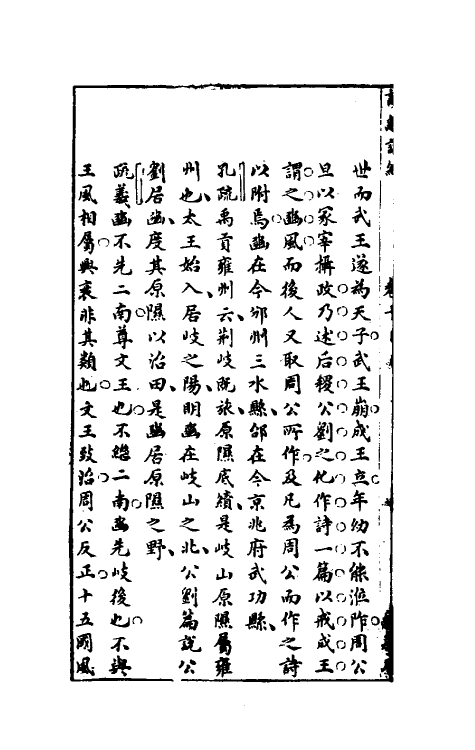 世而武王遂為天子武王崩成王立年幼不能涖阼周公
旦以冡宰攝政乃述后稷公劉之化作詩一篇以戒成王
謂之豳風而後人又取周公所作及凡為周公而作之詩
以附焉豳在今邠州三水縣邰在今京兆府武功縣
孔疏禹貢雍州云荆岐既旅原隰底績是岐山原隰屬雍
州也太王始入居岐之陽明豳在岐山之北公劉篇說公
劉居豳度其原隰以治田是豳居原隰之野
疏義豳不先二南尊文王也不繼二南豳先岐後也不與
王風相屬興衰非其類也文王致治周公反正十五國風